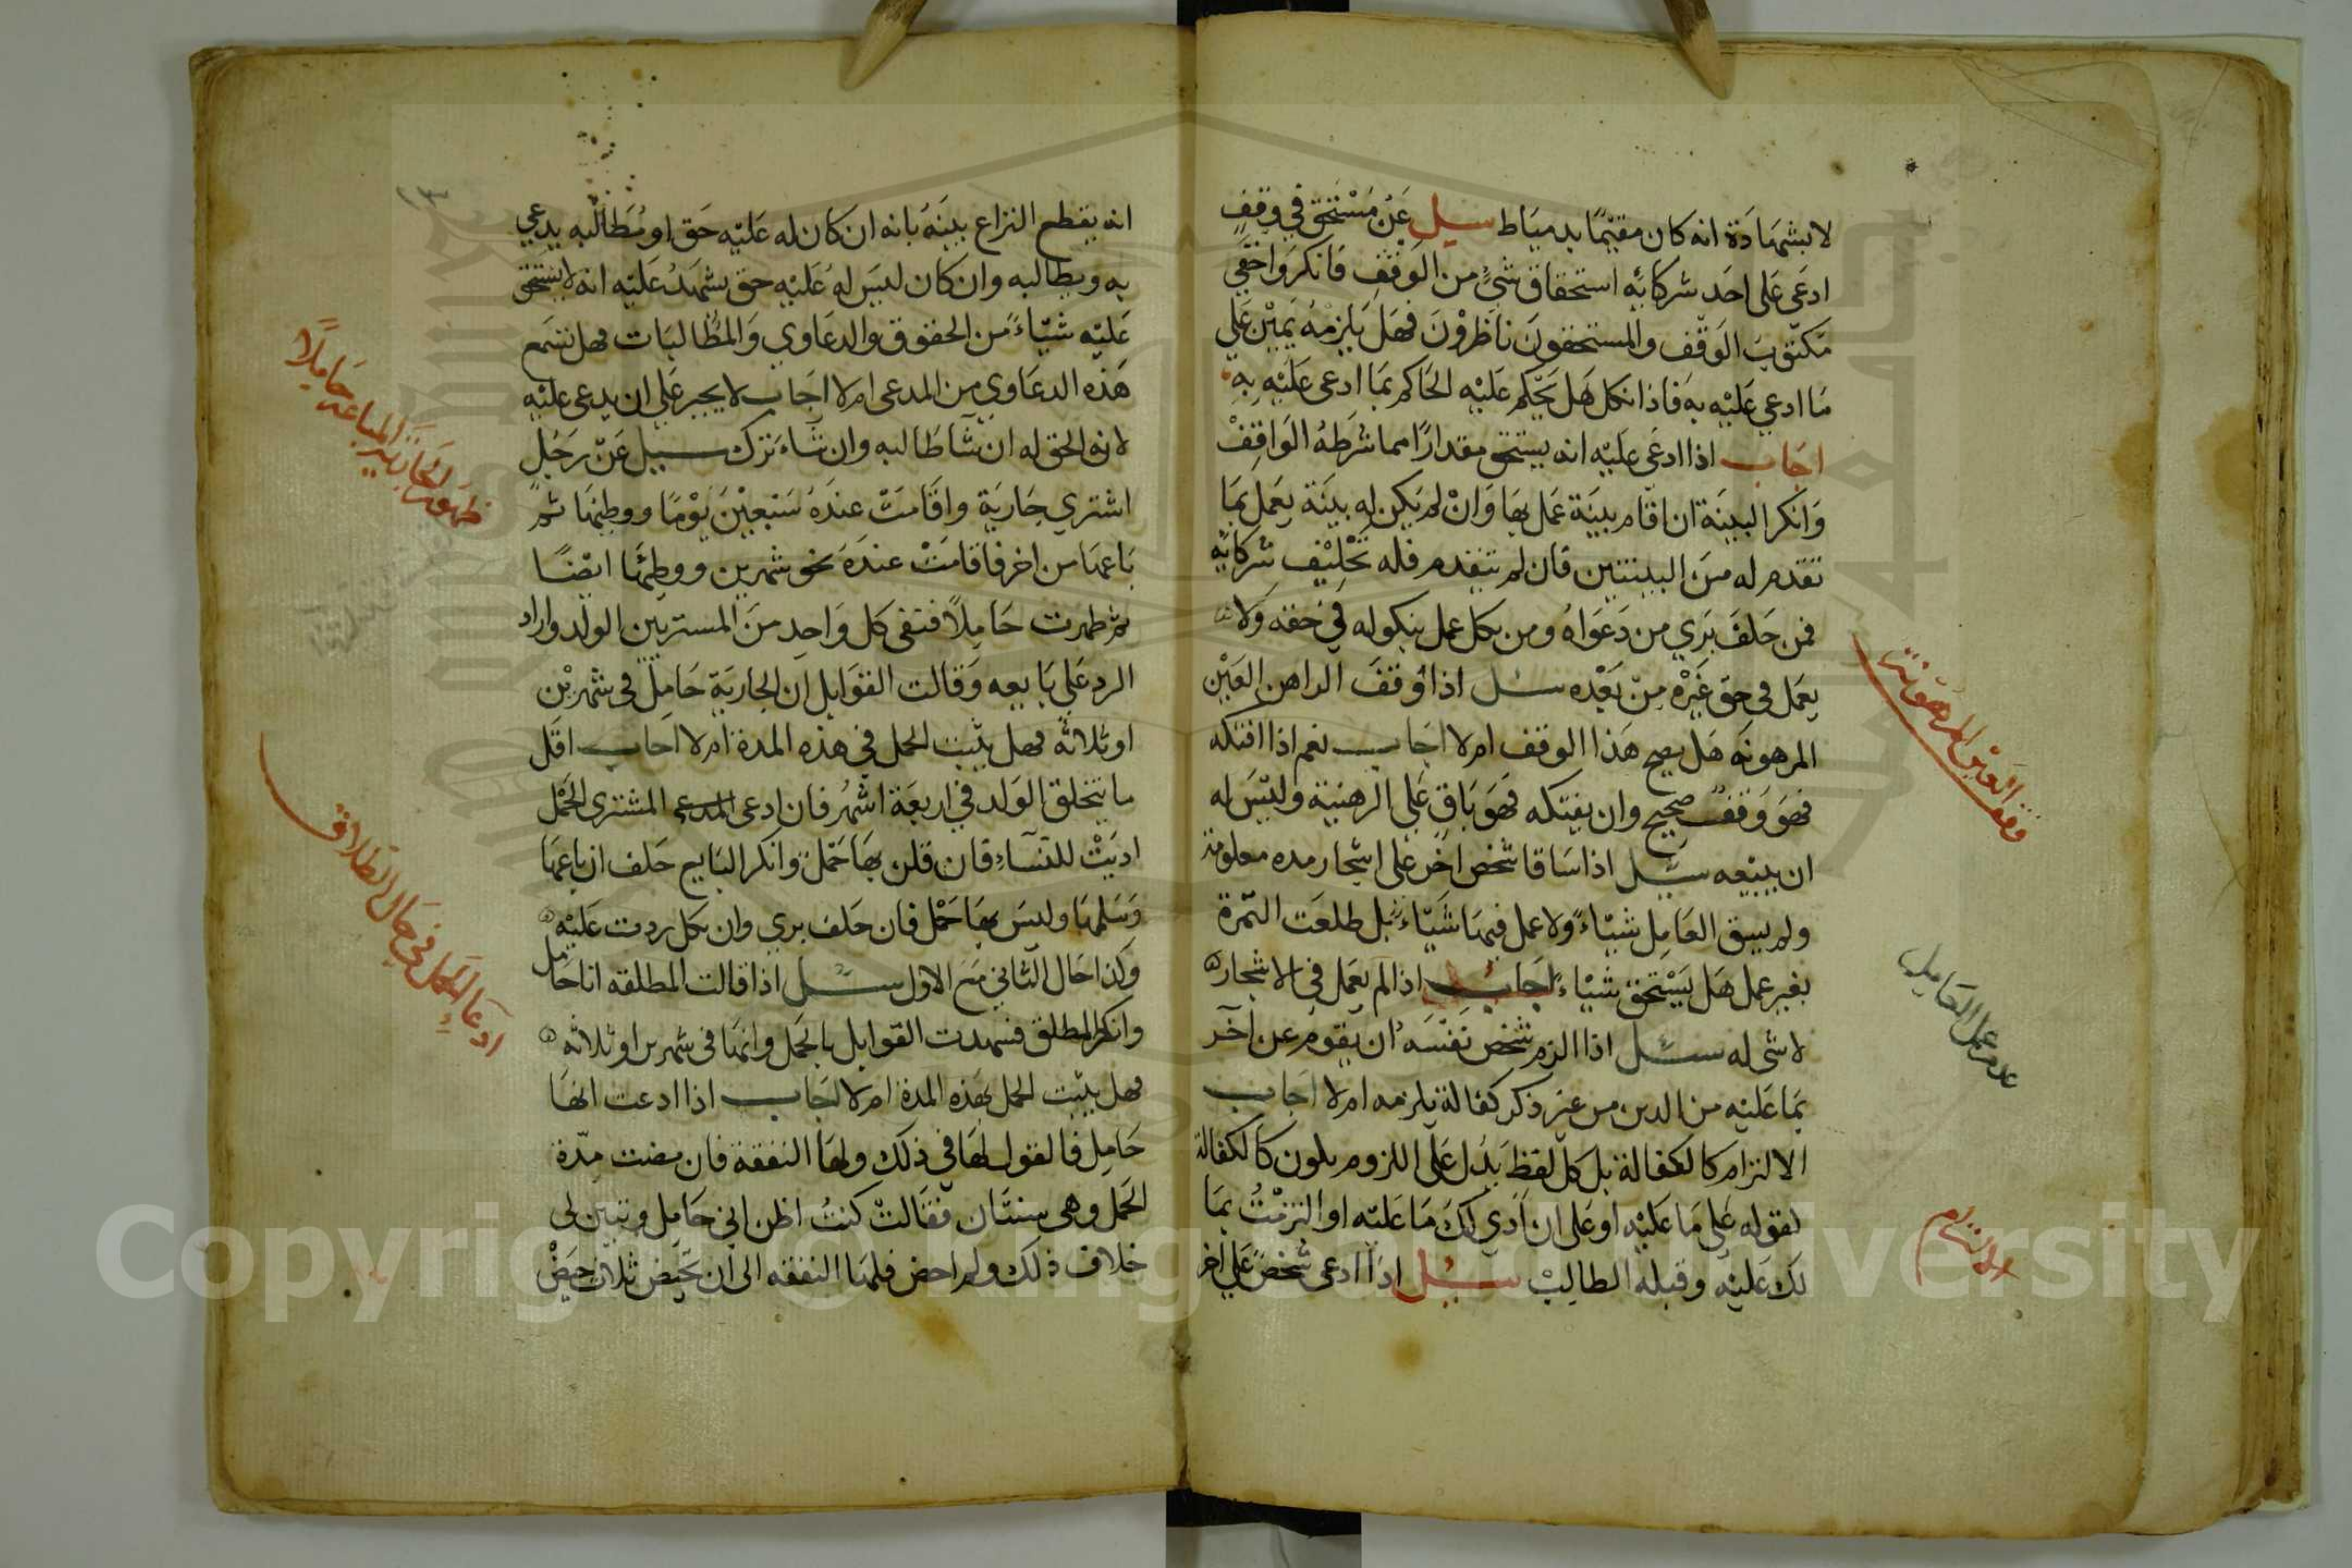 لا بشهادة انه كان مقيمًا بدمياط سيل عَن مَسْتحق في وقف
ادعَى عَلى احَد شركائه استحقاق شئ من الوَقفِ فَانكرَ وَاخفَى
مكتوب الوَقف والمستحقونَ ناظرُوْنَ فهَل يَلزمهُ يَمِيْن عَلى
مَا ادعي عَليْه بهَ فاذا نكل هَل يَحْكم عَليْه الحَاكم بمَا ادعى عَليْه بِهِ
اجَاب اذا ادعَى عَليْه انه يستحق مقدارًا مما شرَطهُ الوَاقِفْ
وَانكرَ البينَة ان اقام بينَة عَمل بهَا وَانْ لم يَكن له بينَة يعَمل بمَا
تقدم له مِنَ البينتين فان لم تتقدم فله تَحْليْف شركائه
فمن حَلفَ بَري من دَعوَاهُ ومن نكل عمل بنكوله في حَقه وَلا
يعَمل في حق غَيْره مِن بَعْده سئل اذا أوقفَ الراهن العَيْن
المرهونَه هَل يصح هَذا الوقف ام لا اجَاب نعم اذا افتكه
فهوَ وَقف صَحِيح وان يفتكه فهوَ بَاق عَلى الرهنية وليْسَ له
ان يبيْعه سئل اذا سَاقا شخص اخر عَلى اشجار مده معلومة
ولم يسق العَامِل شيئاءً ولا عمل فيهَا شَيْئاءً بل طلعَت الثمرة
بغير عمل هَل يَسْتحق شيْئاء اجَاب اذا لم يعَمل في الاشجار
لا شى له سئل اذا الزم شخص نفسَه ان يقوم عن آخر
بمَا عَليْه من الدين من غير ذكر كفالة يلزمه ام لا اجَاب
الالتزام كالكفالة بل كل لفظ يَدُل عَلى اللزوم يكون كالكفالة
لقوله عَلى مَا عَليْه او عَلى ان اَدي لكَ مَا عَليْه او التزمْتُ بمَا
لك عَليْه وقبله الطالبْ سيل اذا ادعى شخصٌ عَلى اخر
وقف العَيْن المرهونة
عدم عمل العَامِل
الالتزام
انه يقطع النزاع بينَهُ بانه ان كان له عَليْه حَق او مُطالبه يدعي
به ويطالبه وان كان ليسَ لهُ عَليْه حق يشهدُ عَليْه انه لا يستحق
عَليْه شيْئاءً من الحقوق والدعَاوي وَالمطالبَات فهل تسَمع
هَذه الدعَاوي من المدعى ام لا اجَاب لا يجبر عَلى ان يدعى عليْه
لانه الحق له ان شا طالبه وان شَاء ترك سيل عَنْ رَجُل
اشتري جَاريَة واقَامَتْ عندَهُ سَبْعِيْنَ يَوْمًا ووطئهَا ثم
بَاعهَا من اخر فاقامَتْ عندَهُ نحو شهرين ووطئَها ايضًا
ثم ظهرت حَامِلاً فنفى كل وَاحدٍ منَ المستريين الولد واراد
الرد عَلى بَايعه وَقالت القوَابل ان الجاريَة حَامِل في شهرين
او ثلاثة فهل يثبت الحمل في هذه المدة ام لا اجاب اقل
ما يتخلق الوَلد في اربعَة اشهُر فان ادعى المشترى الحَمْل
اريَتْ للنسَاءِ فان قلن بهَا حَمْل وانكر البَايع حَلف ان باعهَا
وَسَلمها وليسَ بهَا حَمْل فان حَلف بري وان نكل ردت عَليْه
وكذا حَال الثاني مَع الاول سئل اذا قالت المطلقه انا حَامل
وانكر المطلق فشهدت القوابل بالحَمل وانهَا في شهرين او ثلاثه
فهل يثبت الحمل بهَذه المدة ام لا اجَاب اذا ادعت انهَا
حَامِل فالقول لهَا في ذلك ولهَا النفقة فان مضت مدّة
الحَمل وهى سنتَان فقالتْ كنتُ اظن اني حَامِل وتبين لى
خلاف ذلك ولم احض فلهَا النفقه الى ان تَحيض ثلاث حِيَضْ
ظهور الجَارية المباعة حَامِلاً
ادعَاء الحَمل في حَال الطلاق